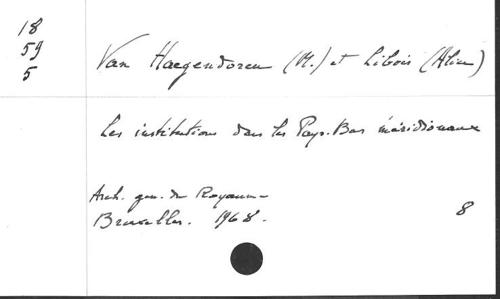 18
59
5
Van Haegendoren (M.) et Libois (Aline)
Les institutions dans les Pays-Bas méridionaux
Arch. gén. du Royaume
Bruxelles. 1968.
8